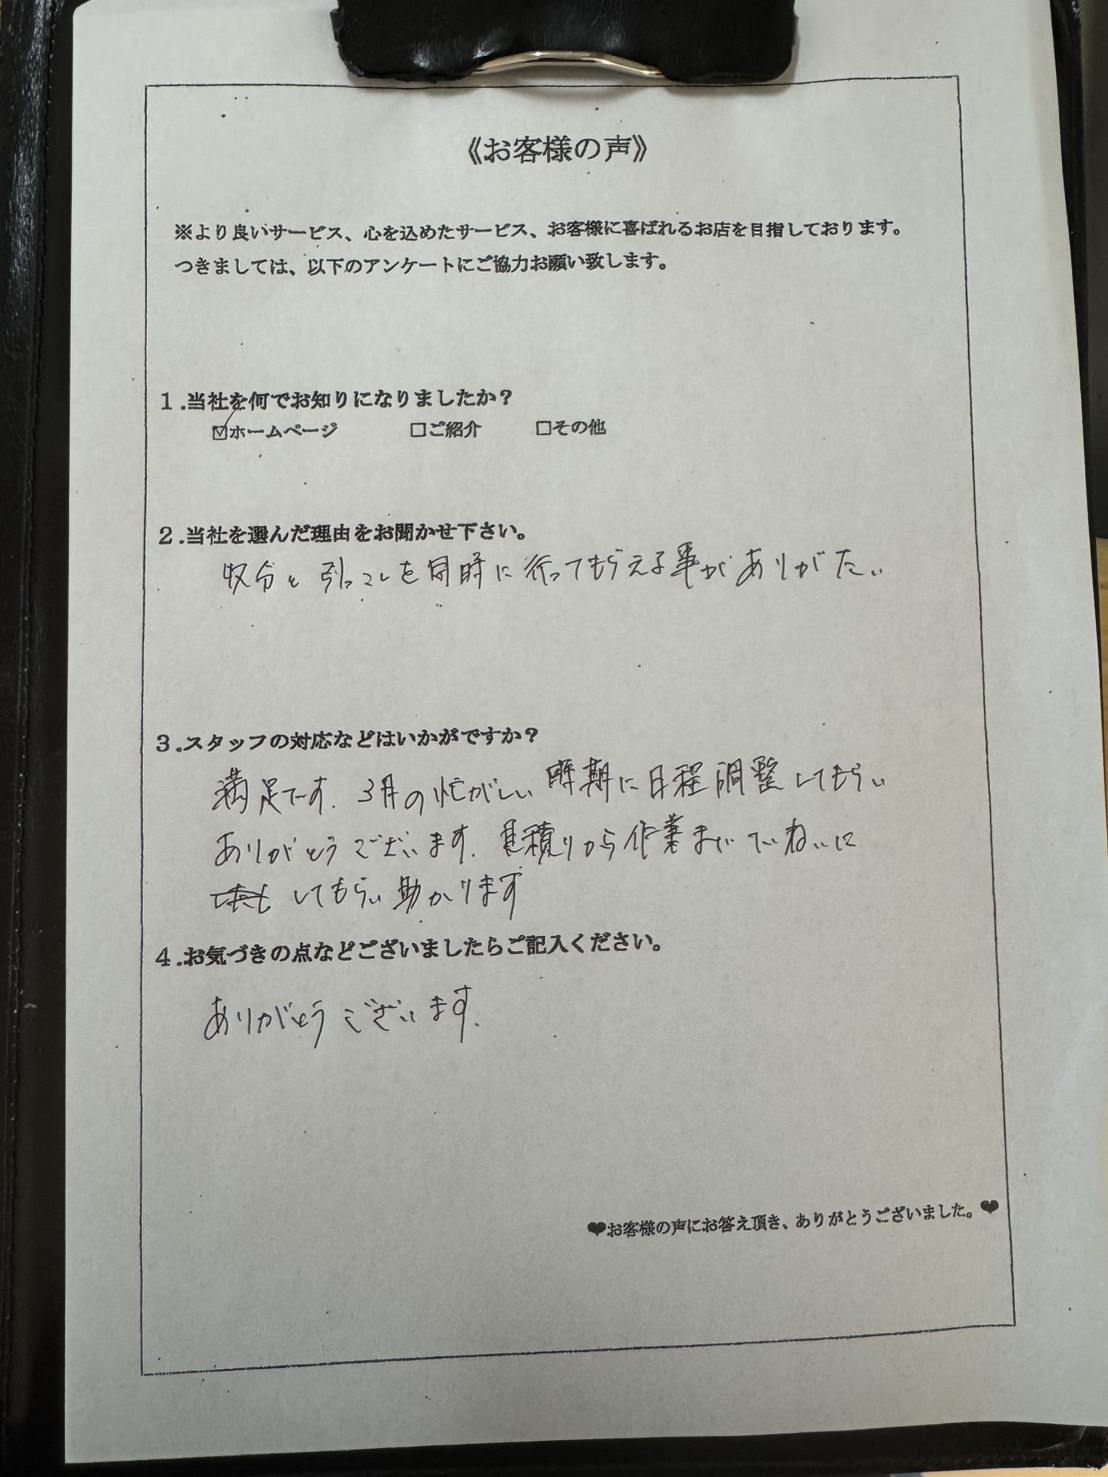 《お客様の声》
※より良いサービス、心を込めたサービス、お客様に喜ばれるお店を目指しております。
つきましては、以下のアンケートにご協力お願い致します。
１.当社を何でお知りになりましたか？
☑ホームページ □ご紹介 □その他
２.当社を選んだ理由をお聞かせ下さい。
処分と引っこしを同時に行ってもらえる事がありがたい
３.スタッフの対応などはいかがですか？
満足です。3月の忙がしい時期に日程調整してもらい
ありがとうございます。見積りから作業までていねいに
してもらい助かります
４.お気づきの点などございましたらご記入ください。
ありがとうございます。
❤お客様の声にお答え頂き、ありがとうございました。❤